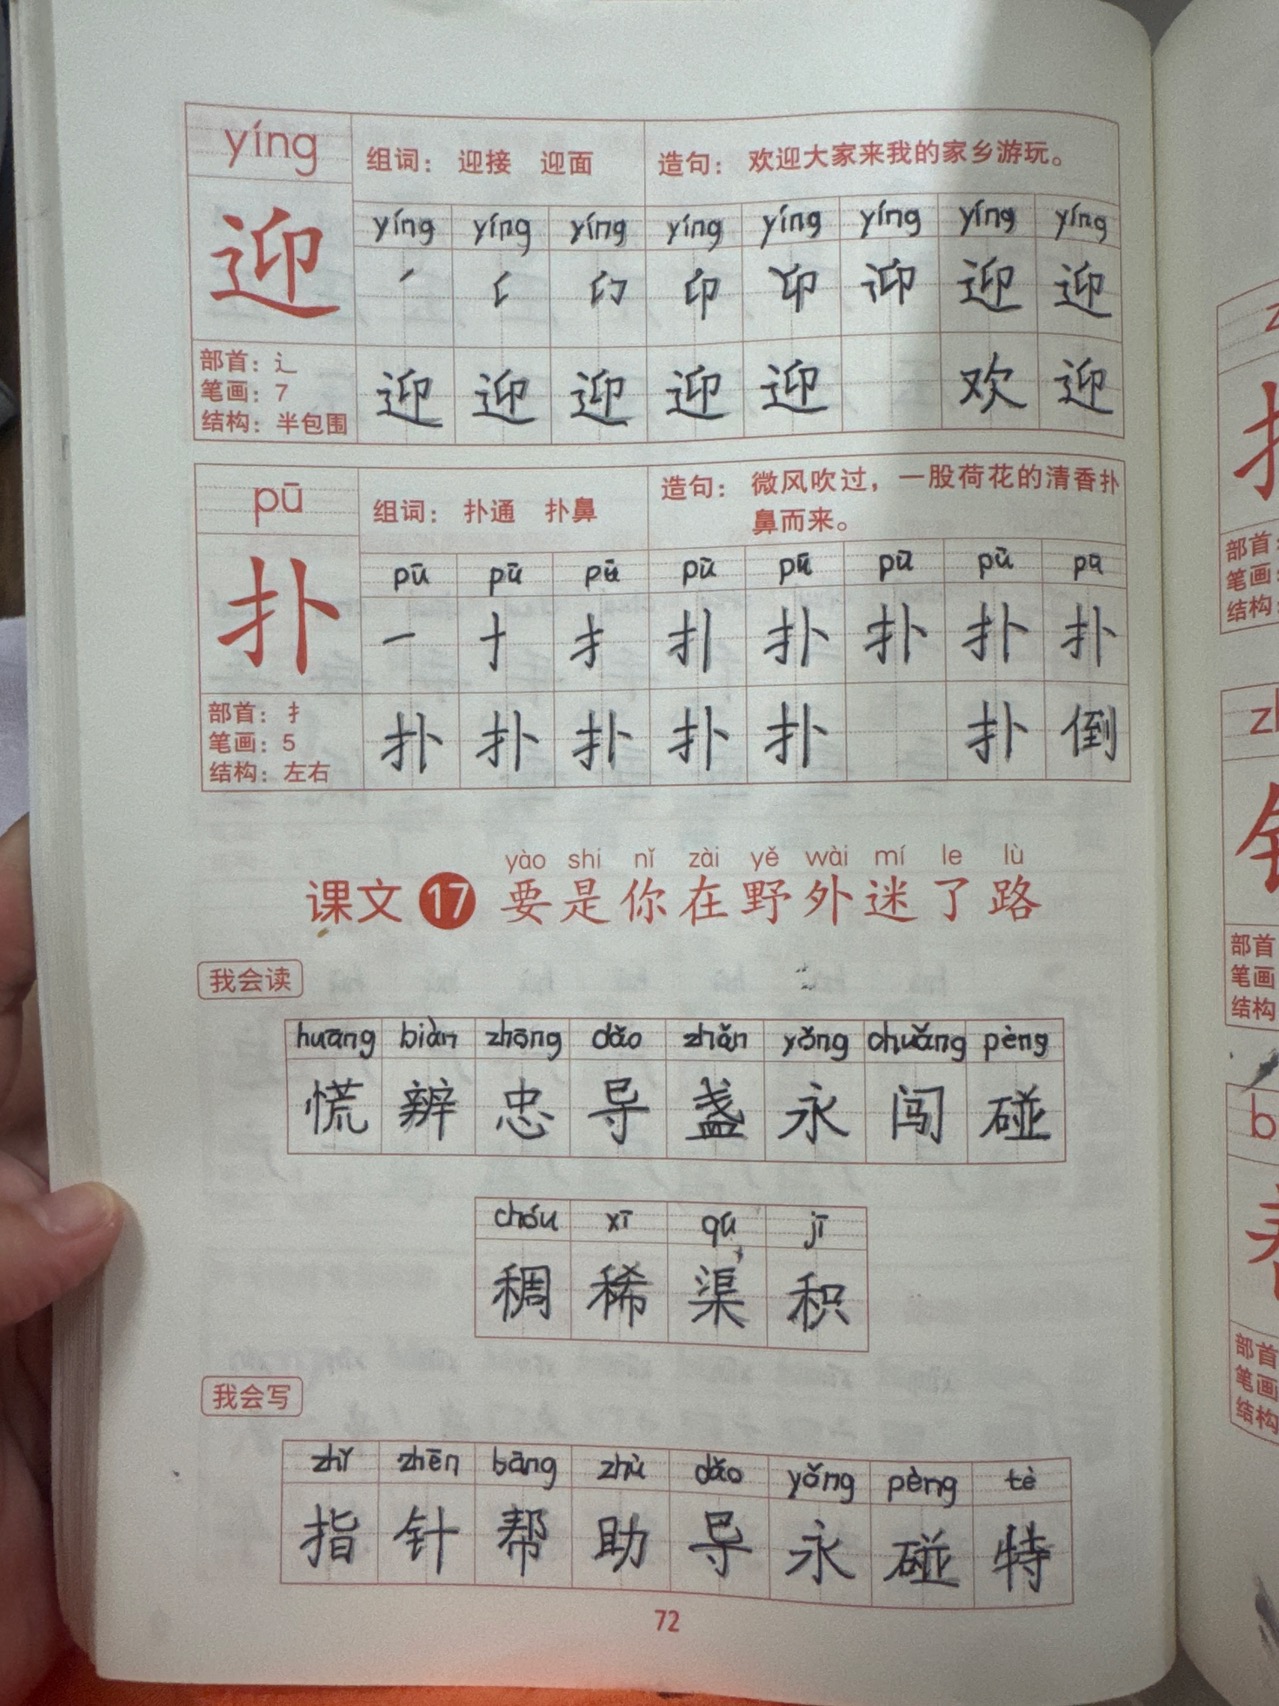 yíng 组词： 迎接 迎面 造句： 欢迎大家来我的家乡游玩。
yíng yíng yíng yíng yíng yíng yíng yíng
迎 迎 迎
部首：辶
笔画：7
结构：半包围
迎 迎 迎 迎 迎 欢 迎
pū 组词： 扑通 扑鼻 造句： 微风吹过，一股荷花的清香扑
鼻而来。
pū pū pū pū pū pū pū pū
扑 一 扌 扑 扑 扑 扑
部首：扌
笔画：5
结构：左右
扑 扑 扑 扑 扑 扑 倒
yào shi nǐ zài yě wài mí le lù
课文 17 要是你在野外迷了路
我会读
huāng biàn zhōng dǎo zhǎn yǒng chuǎng pèng
慌 辨 忠 导 盏 永 闯 碰
chóu xī qú jī
稠 稀 渠 积
我会写
zhǐ zhēn bāng zhù dǎo yǒng pèng tè
指 针 帮 助 导 永 碰 特
72
部首
笔画
结构
部首
笔画
结构
部首
笔画
结构